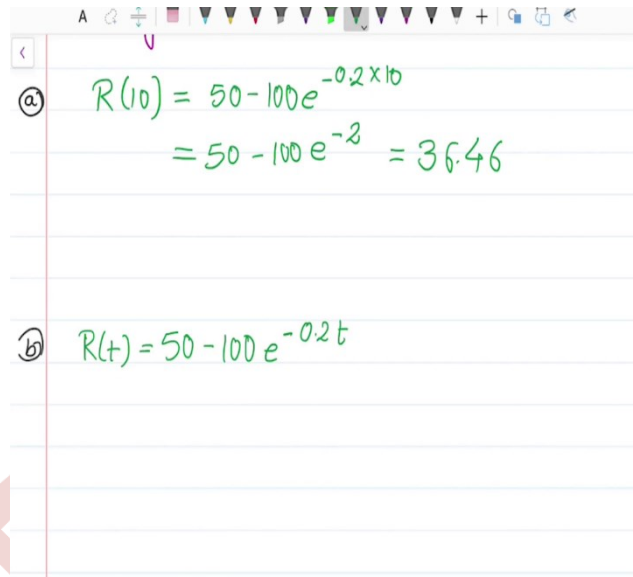 A
ⓐ R(10) = 50-100e^{-0.2×10}
= 50-100e^{-2} = 36.46
ⓑ R(t) = 50-100e^{-0.2t}